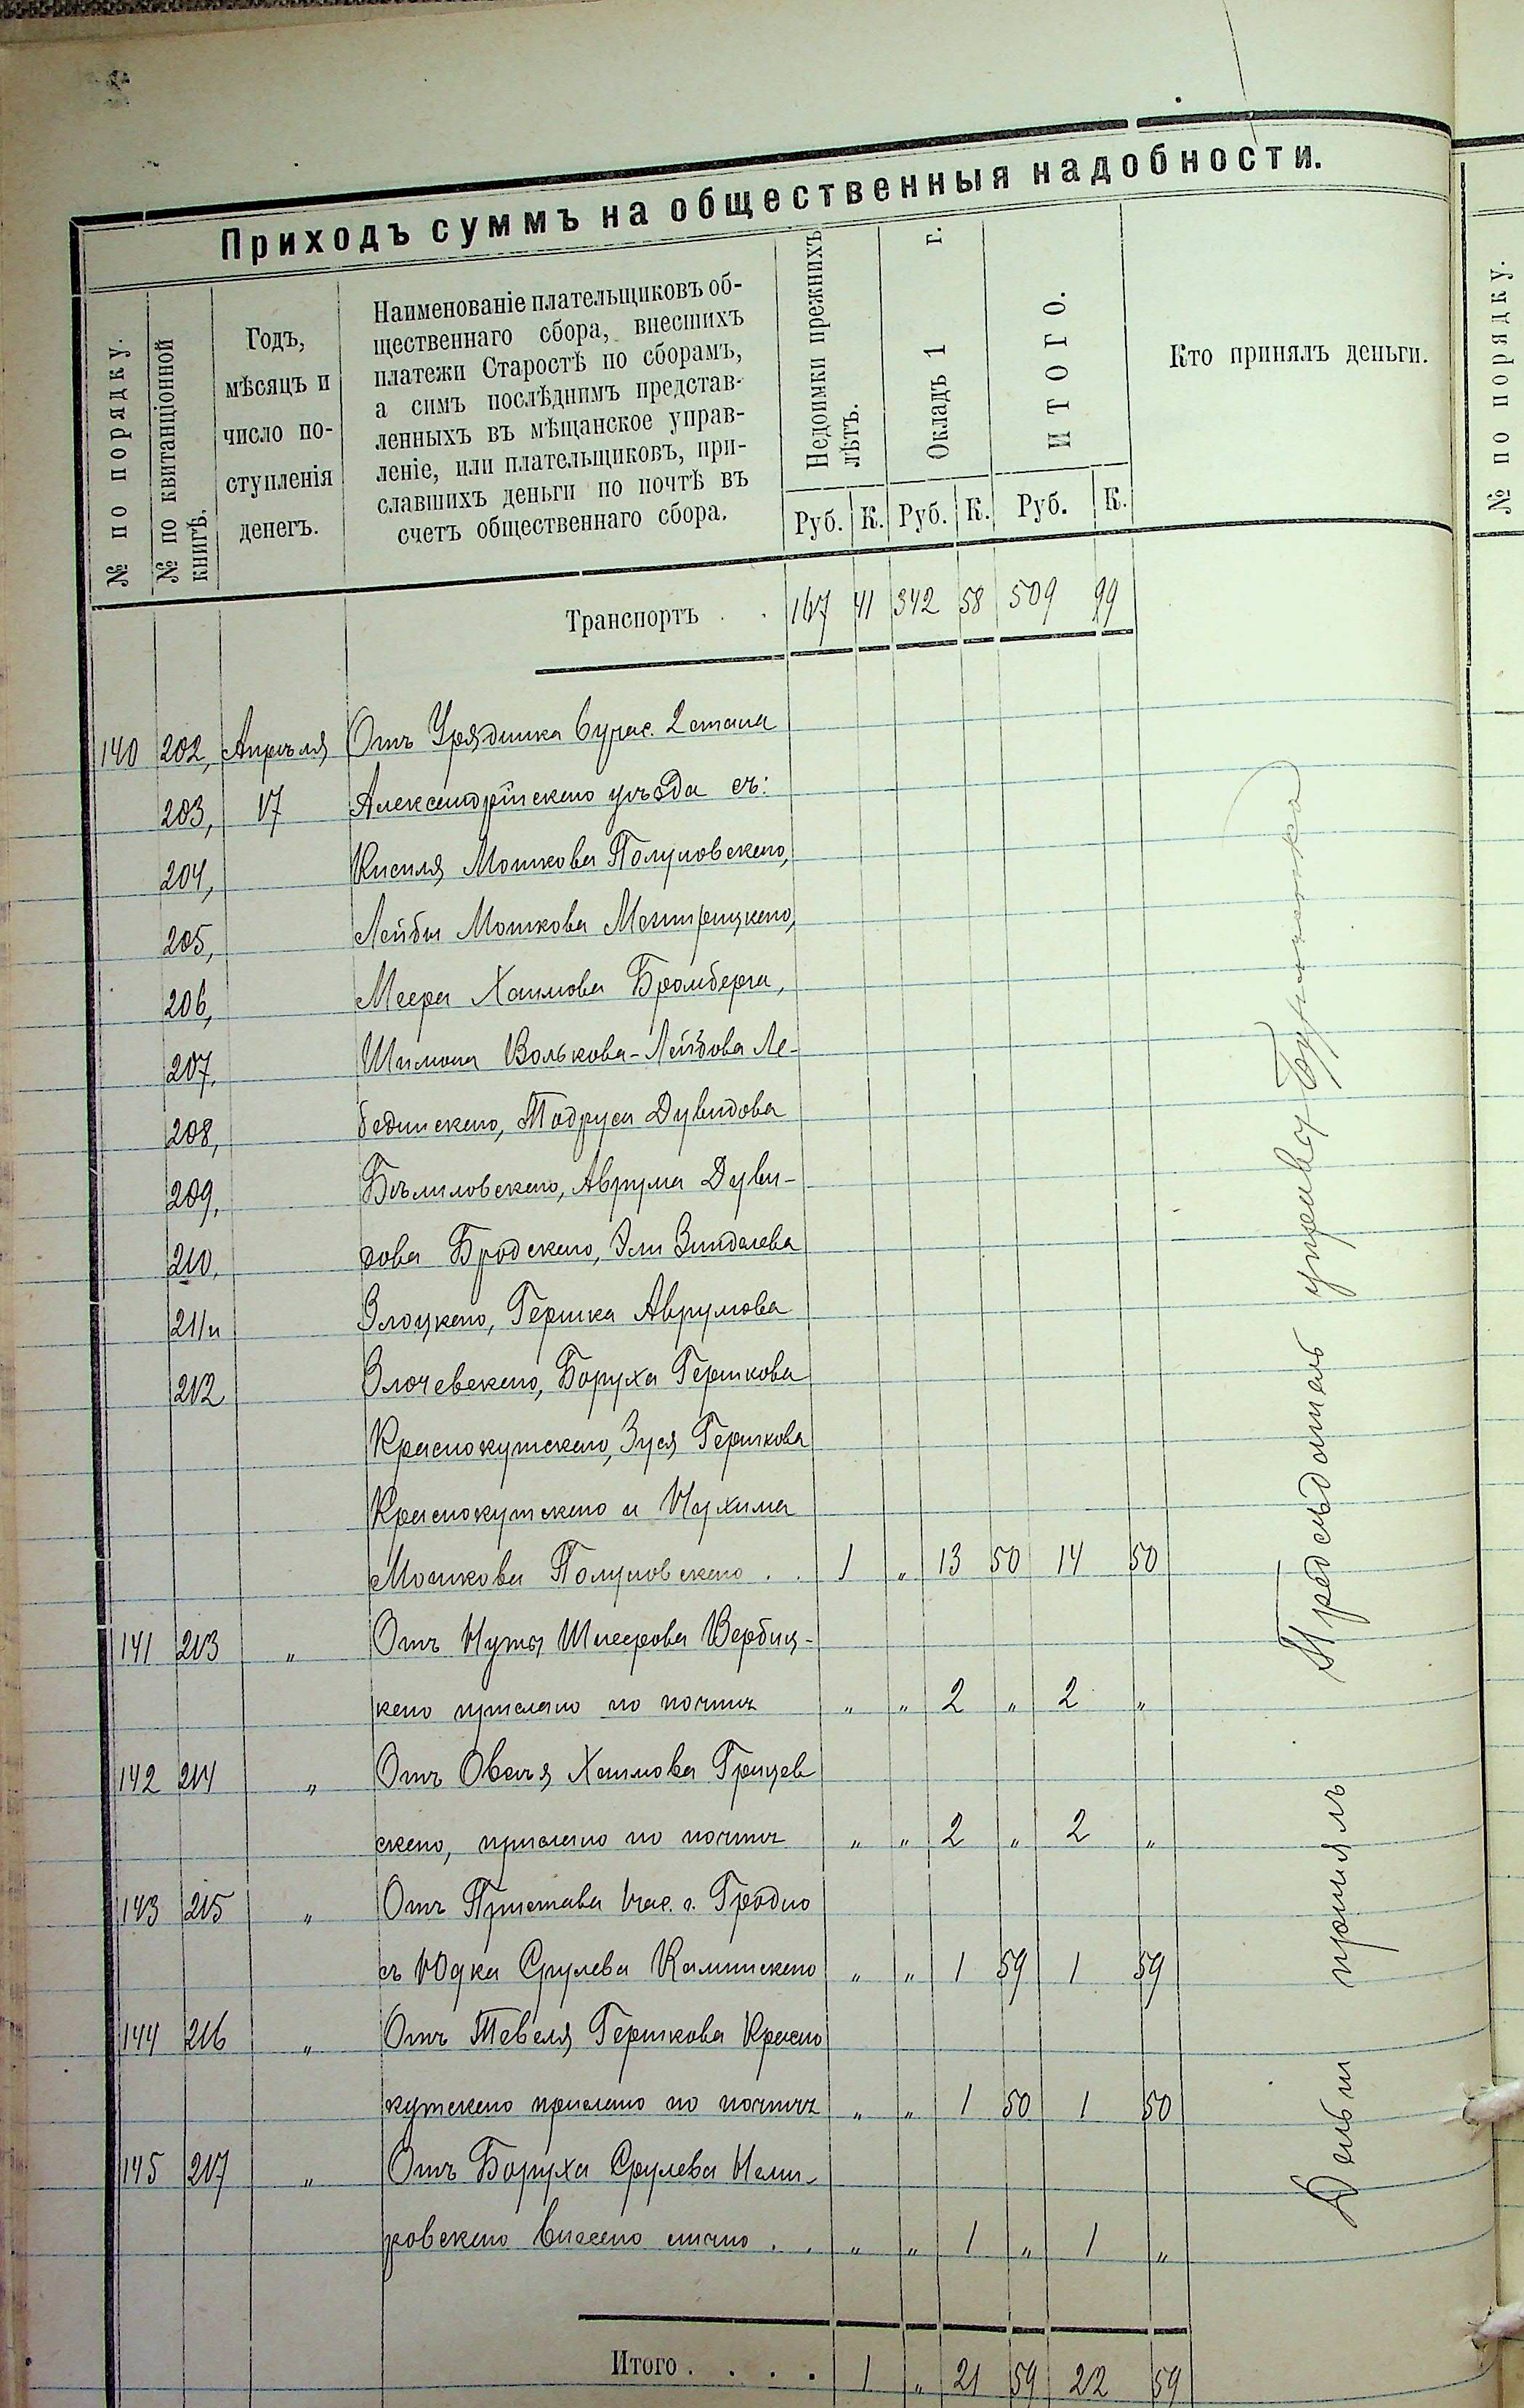 Приходъ суммъ на общественныя надобности.
№ по порядку.
№ по квитанціонной книгѣ.
Годъ,
мѣсяцъ и
число по-
ступленія
денегъ.
Наименованіе плательщиковъ об-
щественнаго сбора, внесшихъ
платежи Старостѣ по сборамъ,
а симъ послѣднимъ представ-
ленныхъ въ мѣщанское управ-
леніе, или плательщиковъ, при-
славшихъ деньги по почтѣ въ
счетъ общественнаго сбора.
Недоимки прежнихъ
лѣтъ.
Окладъ 1 г.
ИТОГО.
Руб. К. Руб. К. Руб. К.
Кто принялъ деньги.
№ по порядку.
Транспортъ . . 167 41 342 58 509 99
140 202, Апрѣля Отъ Урядника 6 учас. 2 стана
203, 17 Александрійскаго уѣзда съ:
204, Кисиля Мошкова Полуновскаго,
205, Лейбы Мошкова Межирицкаго,
206, Меера Хаимова Бромберга,
207, Шимона Волькова-Лейбова Ле-
208, бединскаго, Тодруса Дувидова
209, Бѣлиловскаго, Аврума Дуви-
210, дова Бродскаго, Эли Зинделева
211 и Злоцкаго, Гершка Аврумова
212 Злочевскаго, Боруха Гершкова
Краснокутскаго, Зуся Гершкова
Краснокутскаго и Нухима
Мошкова Полуновскаго . . 1 " 13 50 14 50
141 213 " Отъ Нуты Шмерова Вербиц-
каго прислано по почтѣ " " 2 " 2 "
142 214 " Отъ Овсѣя Хаимова Грицев
скаго, прислано по почтѣ " " 2 " 2 "
143 215 " Отъ Пристава 1 час. г. Гродно
съ Юдка Срулева Каминскаго " " 1 59 1 59
144 216 " Отъ Тевеля Гершкова Красно
кутскаго прислано по почтѣ " " 1 50 1 50
145 217 " Отъ Боруха Срулева Неми-
ровскаго внесено лично . . " " 1 " 1 "
Итого . . . . 1 " 21 59 22 59
Деньги принялъ Предсѣдатель управы